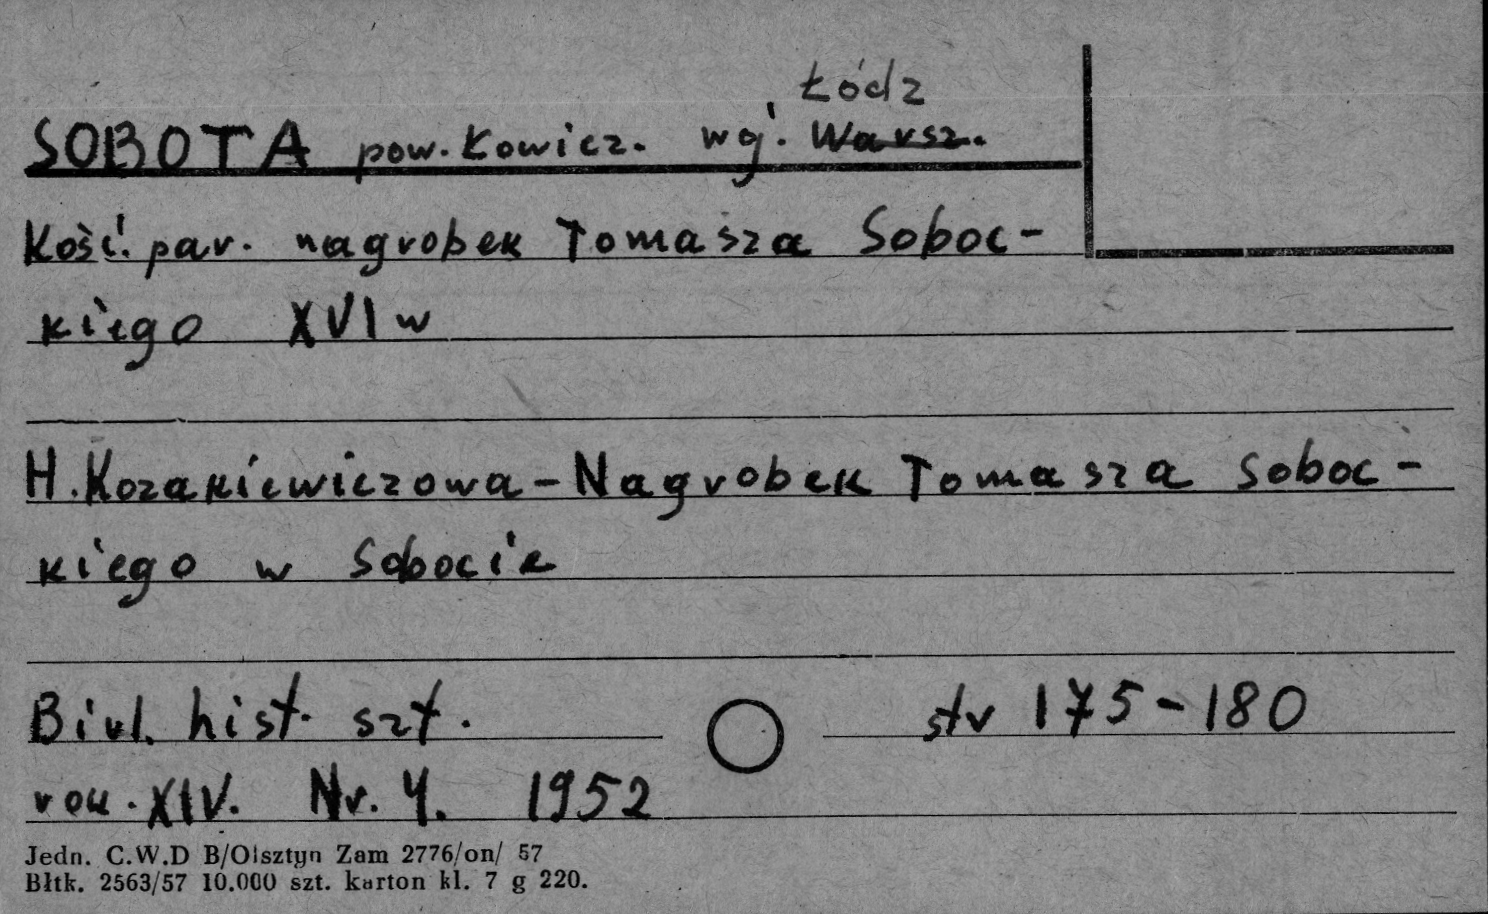 Łódz
SOBOTA pow. Łowicz. woj. Warsz.
Kość. par. nagrobek Tomasza Soboc-
kiego XVI w
H. Kozakiewiczowa - Nagrobek Tomasza Soboc-
kiego w Sobocie
Biul. hist. szt. str 175-180
rok. XIV. Nr. 4. 1952
Jedn. C.W.D B/Olsztyn Zam 2776/on/ 57
Błtk. 2563/57 10.000 szt. karton kl. 7 g 220.